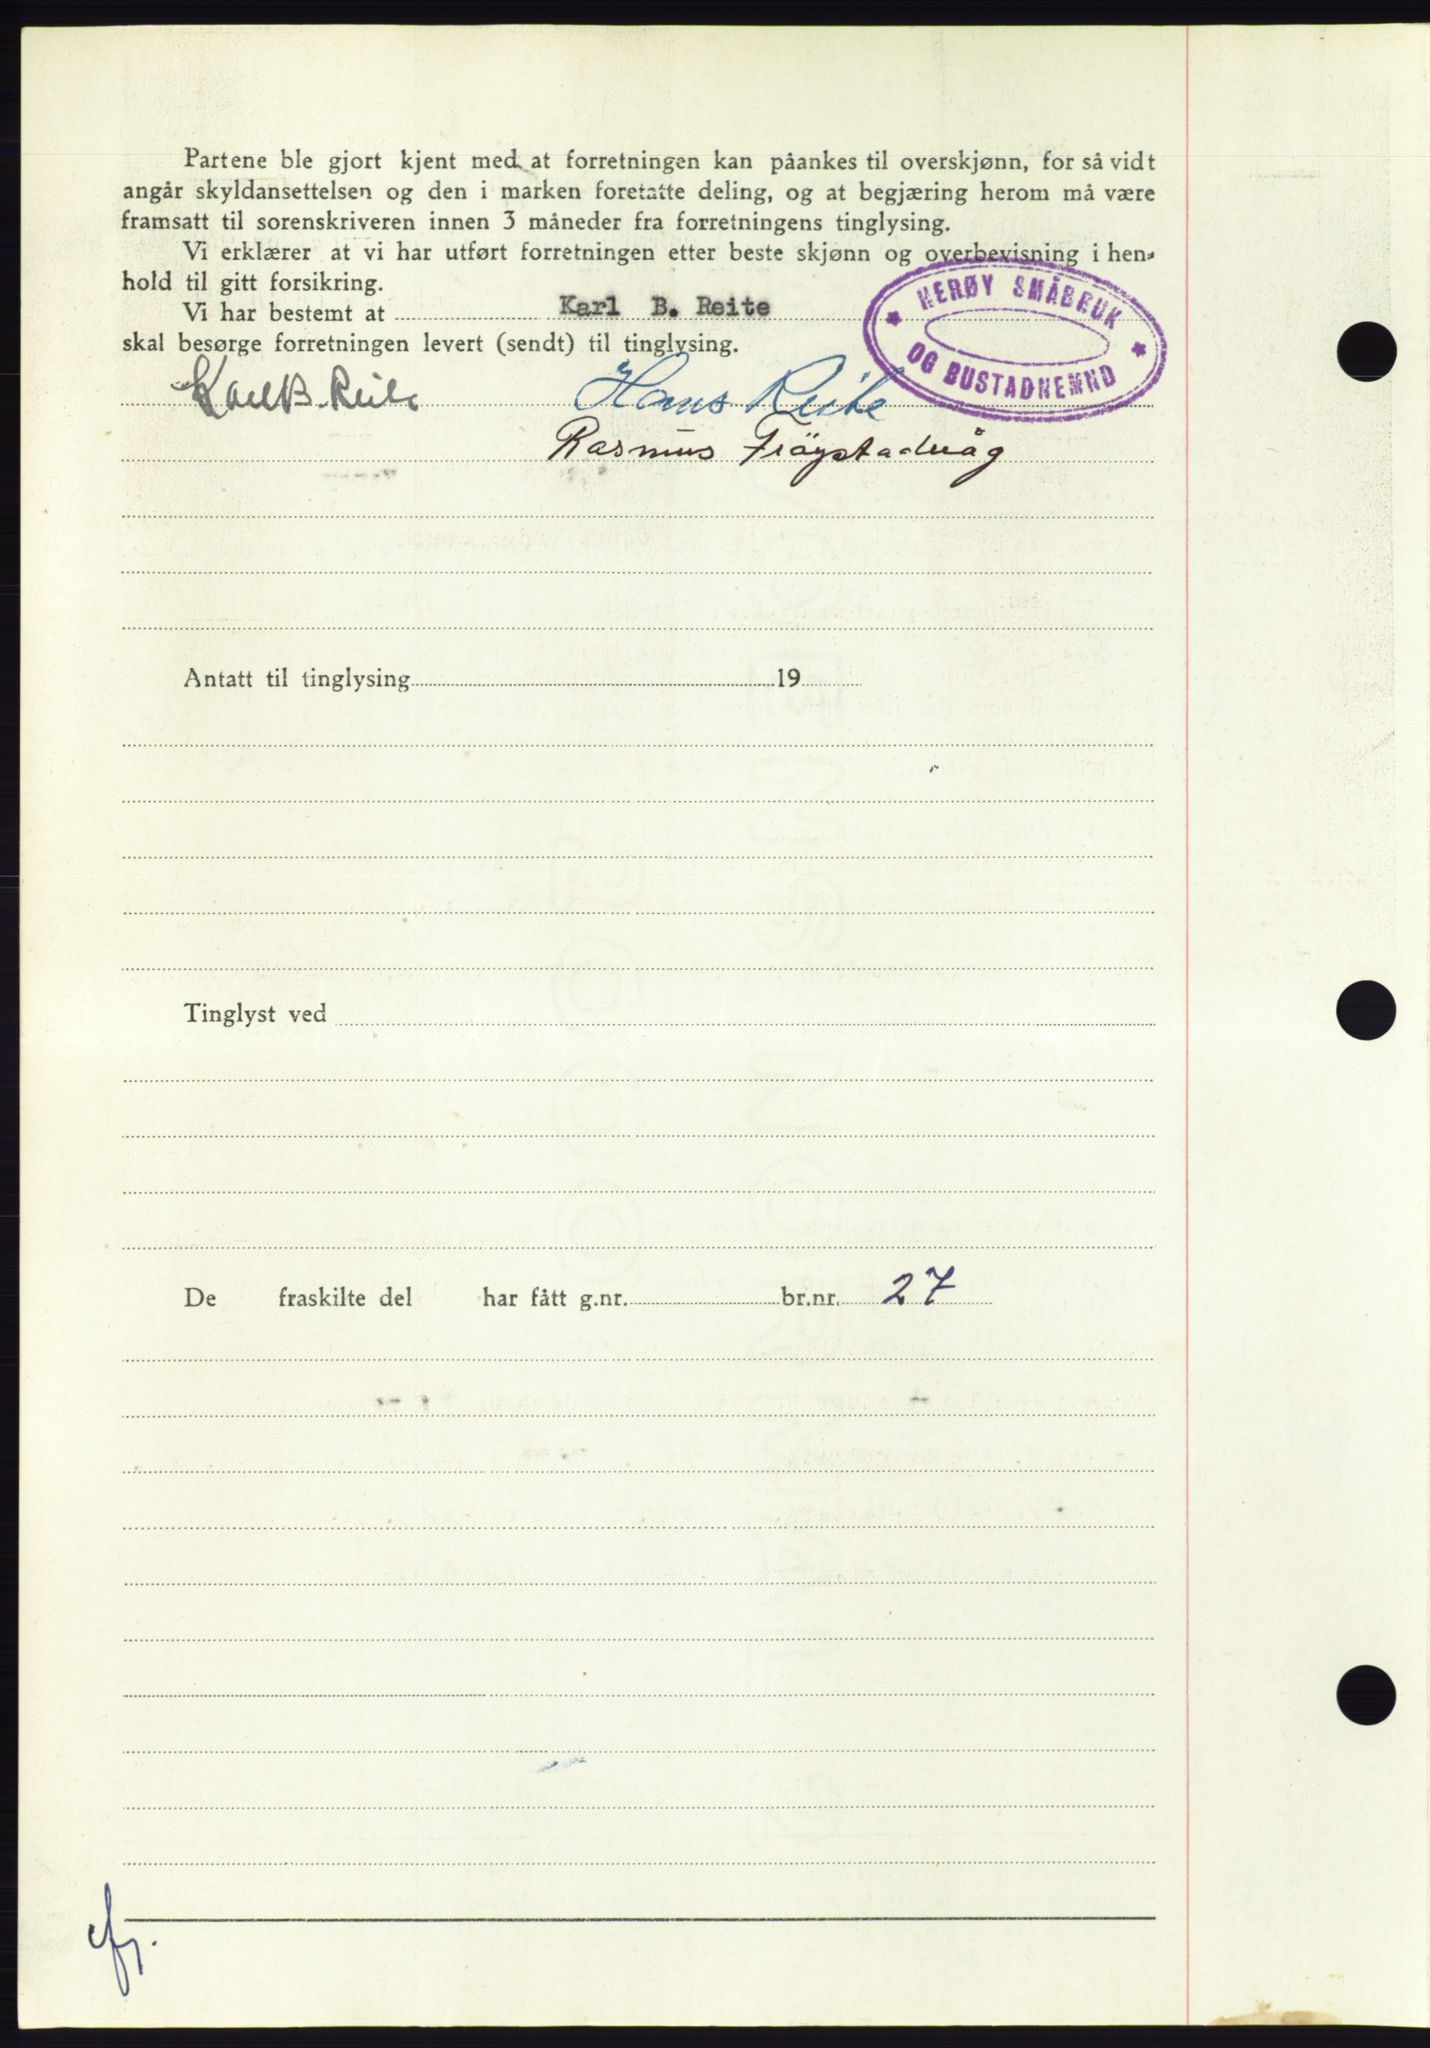 Partene ble gjort kjent med at forretningen kan påankes til overskjønn, for så vidt
angår skyldansettelsen og den i marken foretatte deling, og at begjæring herom må være
framsatt til sorenskriveren innen 3 måneder fra forretningens tinglysing.
Vi erklærer at vi har utført forretningen etter beste skjønn og overbevisning i hen-
hold til gitt forsikring.
Vi har bestemt at Karl B. Reite
skal besørge forretningen levert (sendt) til tinglysing.
HERØY SMÅBRUK
OG BUSTADNEMND
Karl B. Reite Hans Reite
Rasmus Frøystadvåg
Antatt til tinglysing 19
Tinglyst ved
De fraskilte del har fått g.nr. br.nr. 27